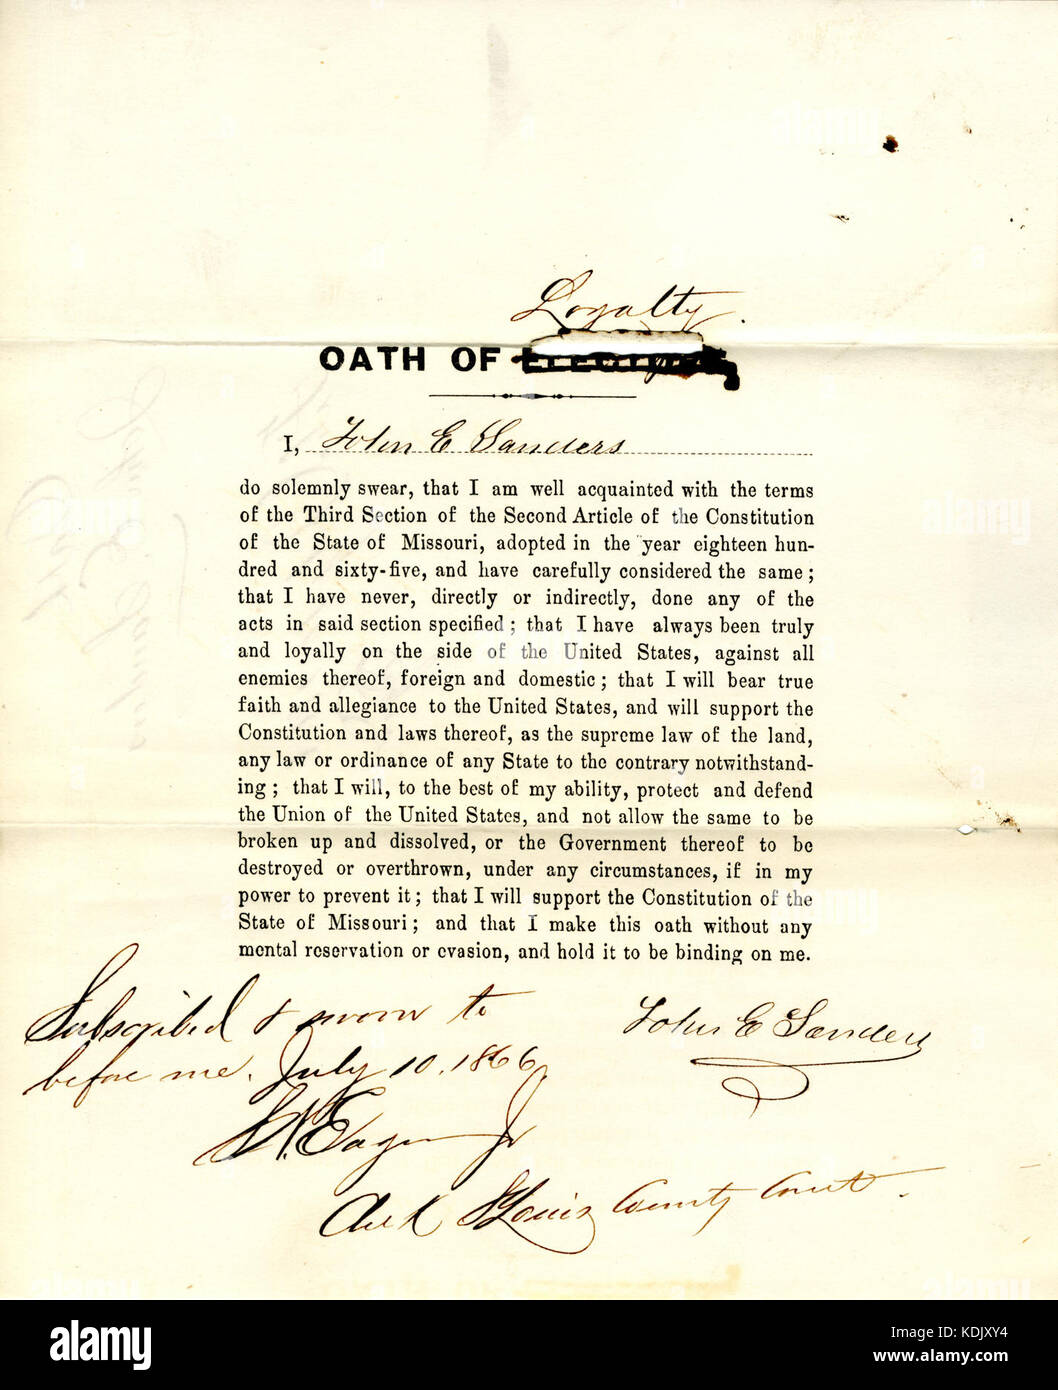 Loyalty.
OATH OF
I, John E Sanders
do solemnly swear, that I am well acquainted with the terms
of the Third Section of the Second Article of the Constitution
of the State of Missouri, adopted in the year eighteen hun-
dred and sixty-five, and have carefully considered the same;
that I have never, directly or indirectly, done any of the
acts in said section specified; that I have always been truly
and loyally on the side of the United States, against all
enemies thereof, foreign and domestic; that I will bear true
faith and allegiance to the United States, and will support the
Constitution and laws thereof, as the supreme law of the land,
any law or ordinance of any State to the contrary notwithstand-
ing; that I will, to the best of my ability, protect and defend
the Union of the United States, and not allow the same to be
broken up and dissolved, or the Government thereof to be
destroyed or overthrown, under any circumstances, if in my
power to prevent it; that I will support the Constitution of the
State of Missouri; and that I make this oath without any
mental reservation or evasion, and hold it to be binding on me.
John E Sanders
Subscribed & sworn to
before me. July 10. 1866
Jr
Clerk St Louis County Court.
alamy
Image ID: KDJXY4
www.alamy.com